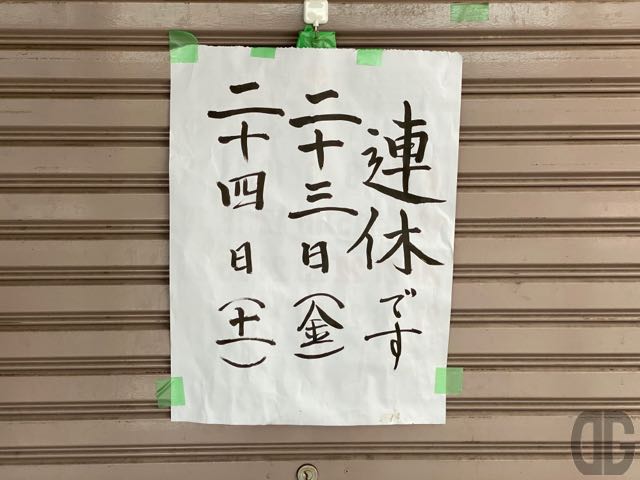 連休です
二十三日(金)
二十四日(土)
DG